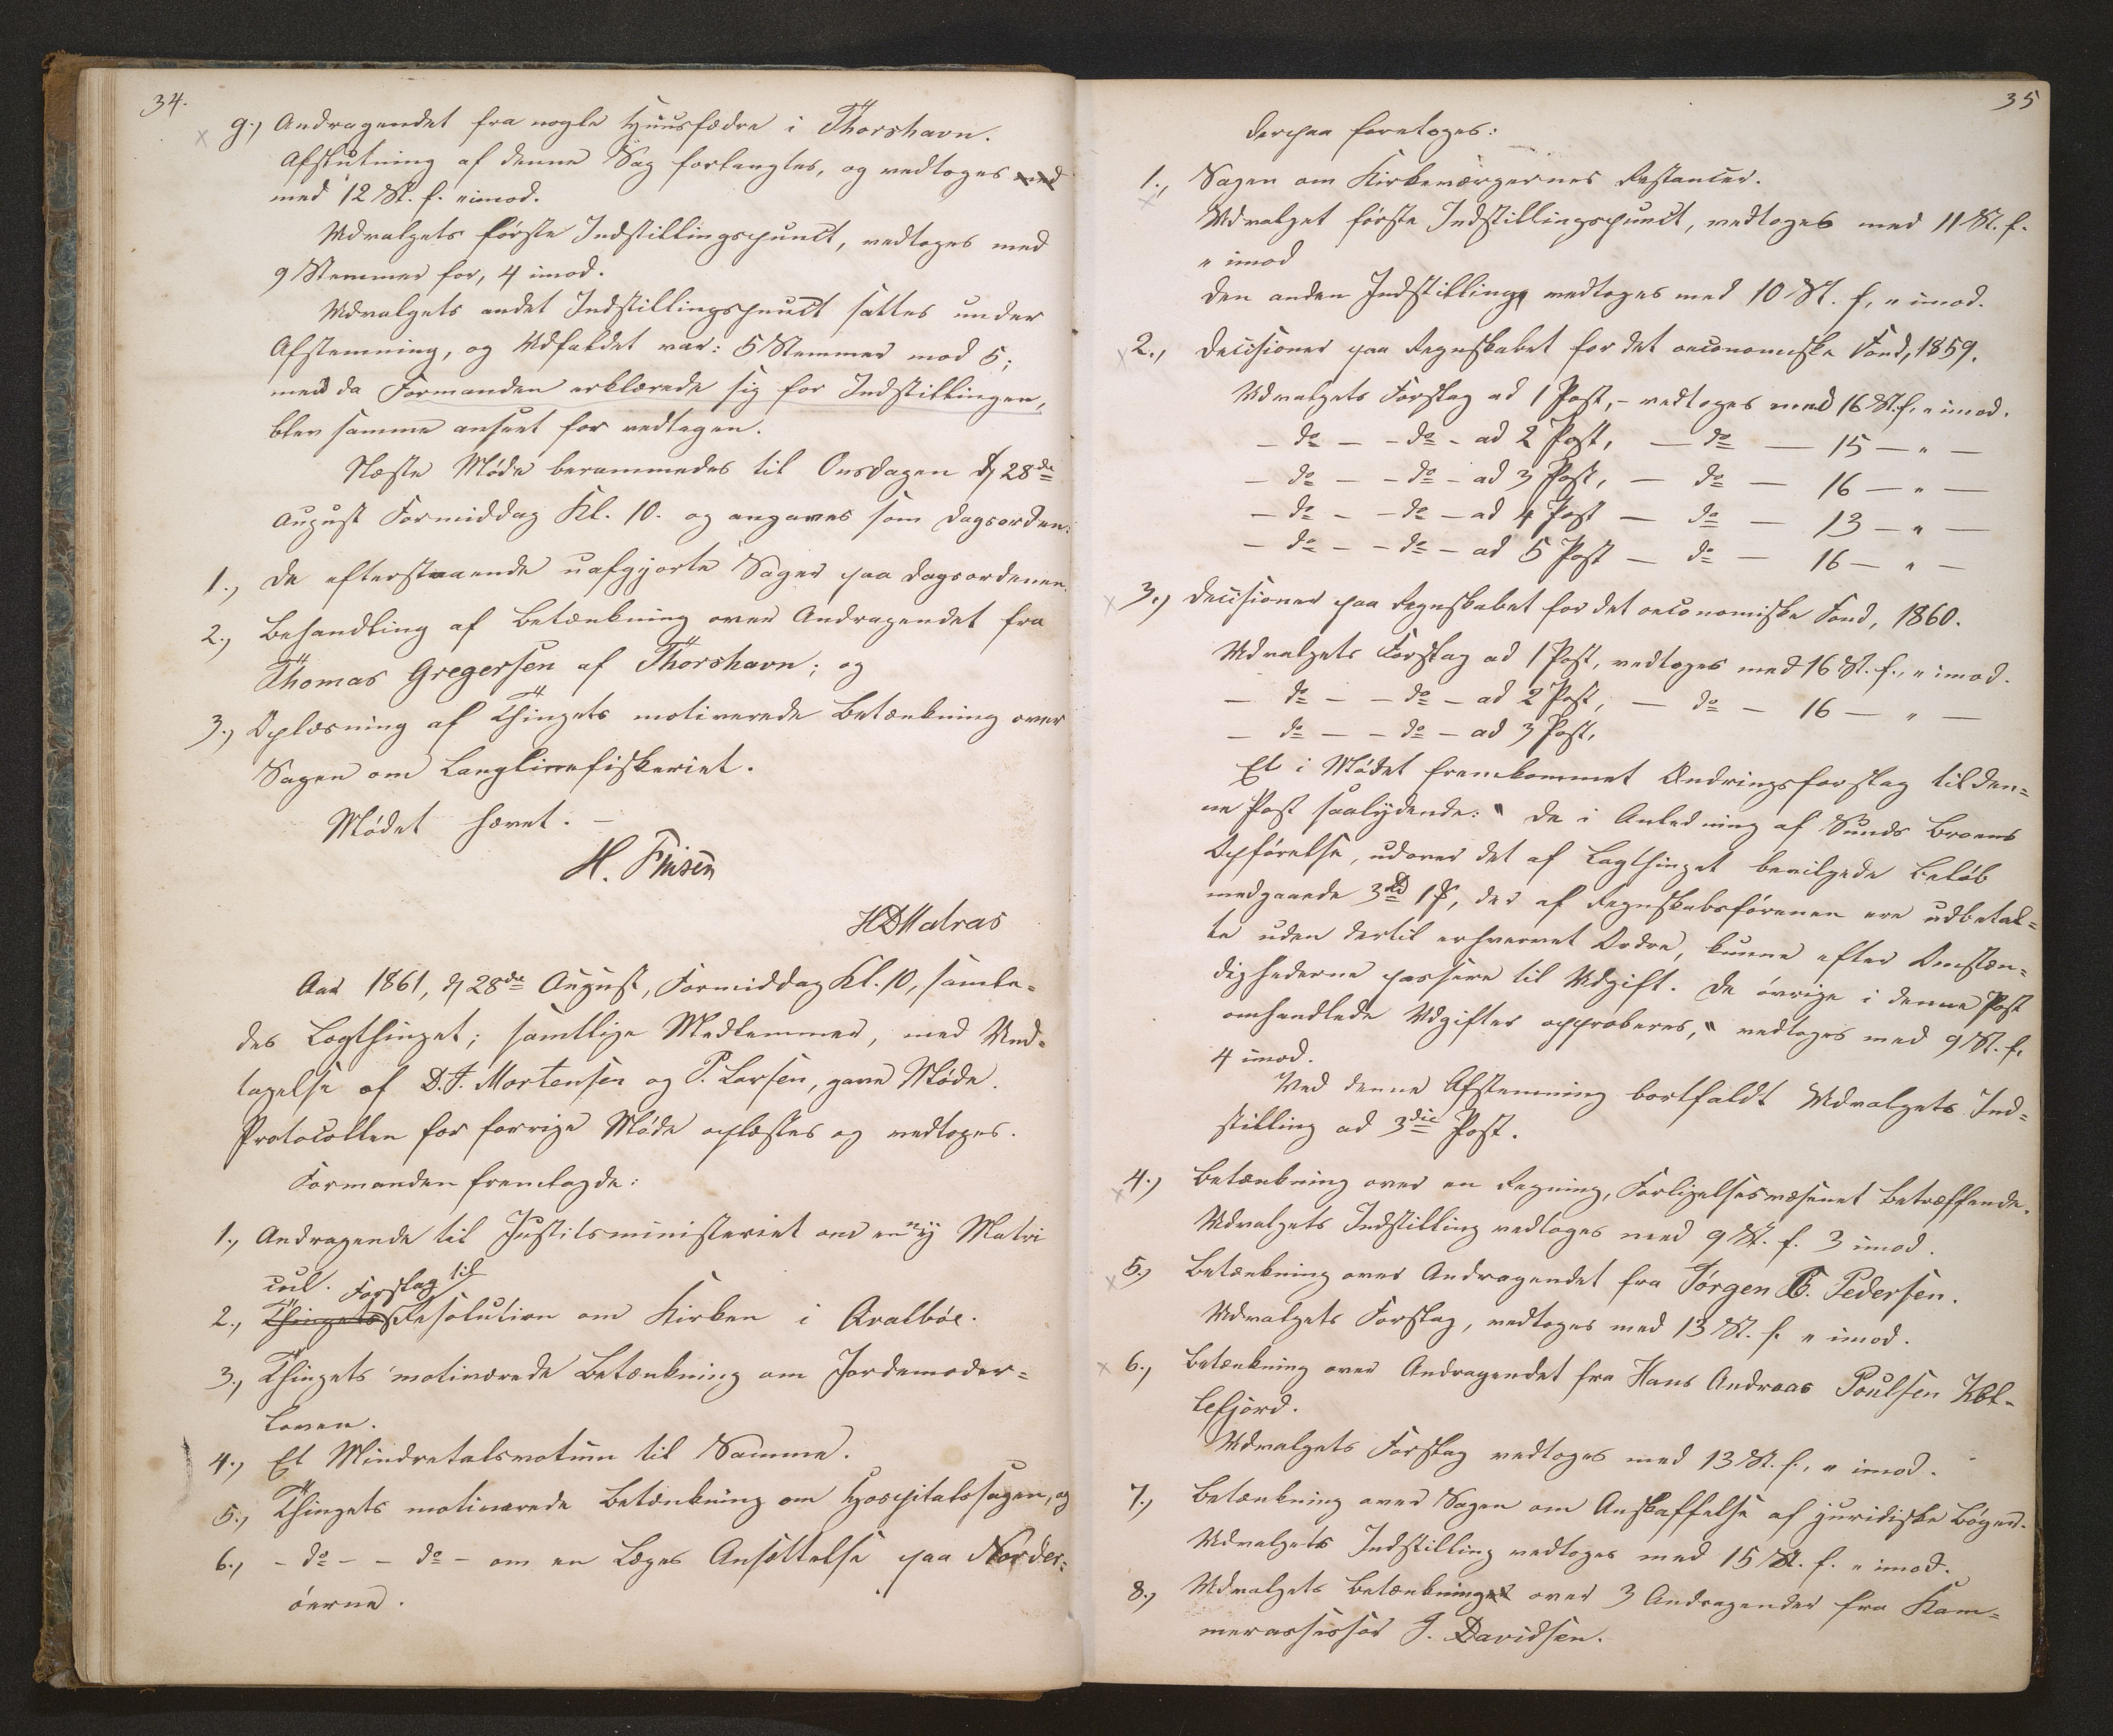 34.
9.) Andragendet fra nogle Huusfædre i Thorshavn.
Afslutning af denne Sag forlangtes, og vedtoges med
med 12 St. f. " imod.
Udvalgets første Indstillingspunct, vedtoges med
9 Stemmer for, 4 imod.
Udvalgets andet Indstillingspunct sattes under
Afstemning, og Udfaldet var: 5 Stemmer mod 5;
men da Formanden erklærede sig for Indstillingen,
blev samme anseet for vedtagen.
Næste Møde berammedes til Onsdagen d. 28de
August Formiddag Kl. 10. og angaves som Dagsorden:
1., De efterstaaende uafgjorte Sager paa Dagsordenen.
2., Behandling af Betænkning over Andragendet fra
Thomas Gregersen af Thorshavn; og
3., Oplæsning af Thingets motiverede Betænkning over
Sagen om Langlinefiskeriet.
Mødet hævet. –
H. Finsen
HDMatras
Aar 1861, d. 28de August, Formiddag Kl. 10, samle-
des Lagthinget; samtlige Medlemmer, med Und-
tagelse af D.J. Mortensen og P. Larsen, gave Møde.
Protocollen for forrige Møde oplæstes og vedtoges.
Formanden fremlagde:
1., Andragende til Justitsministeriet om en ny Matri
cul. Forslag til
2., Thingets Resolution om Kirken i Qvalbøe.
3., Thingets motiverede Betænkning om Jordemoder=
loven.
4., Et Mindretalsvotum til Samme.
5., Thingets motiverede Betænkning om Hospitalssagen, og
6., – do – – do – om en Læges Ansættelse paa Norder=
øerne.
35
Derpaa foretoges:
1., Sagen om Kirkeværgernes Restancer.
Udvalget første Indstillingspunct, vedtoges med 11 St. f.
" imod
Den anden Indstilling vedtoges med 10 St. f, " imod.
2., Decisioner paa Regnskabet for det oeconomiske Fond, 1859.
Udvalgets Forslag ad 1 Post, – vedtoges med 16 St. f. " imod.
– do – – do – ad 2 Post, – do – 15 – " –
– do – – do – ad 3 Post, – do – 16 – " –
– do – – do – ad 4 Post – do – 13 – " –
– do – – do – ad 5 Post – do – 16 – " –
3., Decisioner paa Regnskabet for det oeconomiske Fond, 1860.
Udvalgets Forslag ad 1 Post, vedtoges med 16 St. f., " imod.
– do – – do – ad 2 Post, – do – 16 – " –
– do – – do – ad 3 Post,
Et i Mødet fremkommet Ændringsforslag til den=
ne Post saalydende: "De i Anledning af Sunds Broens
Opførelse, udover det af Lagthinget bevilgede Beløb
medgaaede 3 Rd 1 ß, der af Regnskabsføreren ere udbetal=
te uden dertil erhvervet Ordre, kunne efter Omstæn=
dighederne passere til Udgift. De øvrige i denne Post
omhandlede Udgifter approberes," vedtoges med 9 St. f.
4 imod.
Ved denne Afstemning bortfaldt Udvalgets Ind=
stilling ad 3die Post.
4., Betænkning over en Regning, Forligelsesvæsenet betræffende.
Udvalgets Indstilling vedtoges med 9 St. f. 3 imod.
5., Betænkning over Andragendet fra Jørgen C. Pedersen.
Udvalgets Forslag, vedtoges med 13 St. f. " imod.
6., Betænkning over Andragendet fra Hans Andreas Poulsen Kol-
lefjord.
Udvalgets Forslag vedtoges med 13 St. f., " imod.
7., Betænkning over Sagen om Anskaffelse af juridiske Bøger.
Udvalgets Indstilling vedtoges med 15 St. f. " imod.
8., Udvalgets Betænkning over 3 Andragender fra Kam=
merassessor J. Davidsen.